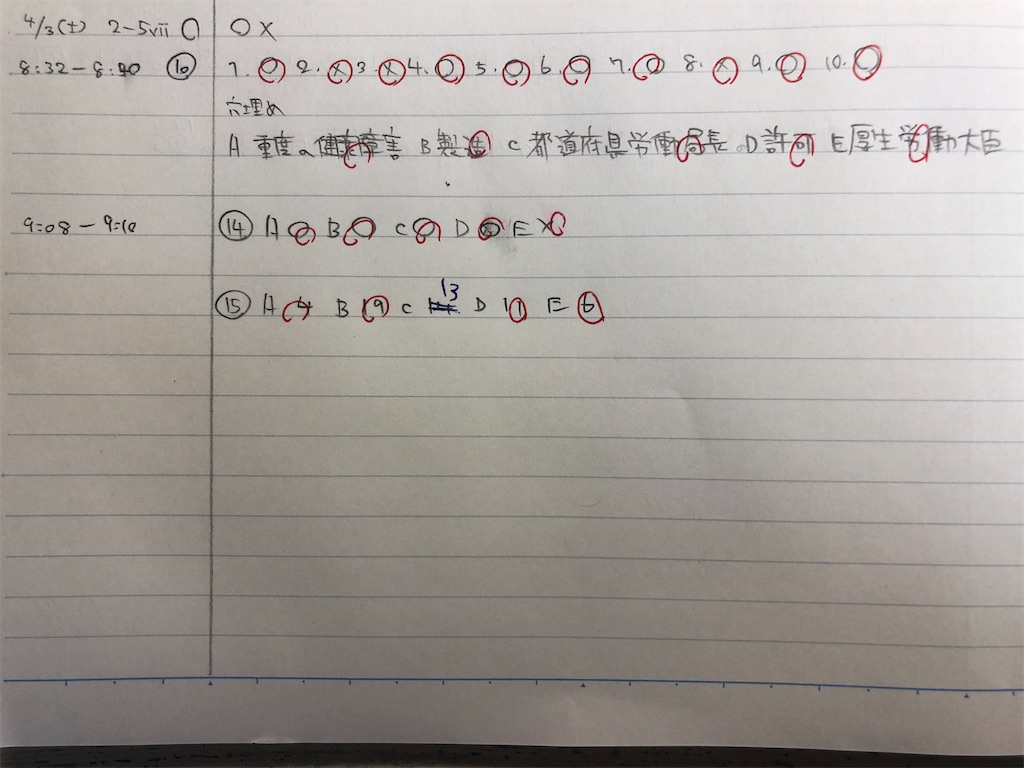 4/3(土) 2-5vii ○ ○×
8:32-8:40 ⑯ 1.○ 2.× 3.× 4.○ 5.○ 6.○ 7.○ 8.× 9.○ 10.○
穴埋め
A 重度の健康障害 B 製造 C 都道府県労働局長 D 許可 E 厚生労働大臣
9:08-9:10 ⑭ A ○ B ○ C ○ D E ×
⑮ A 4 B 9 C 13 D 11 E 6